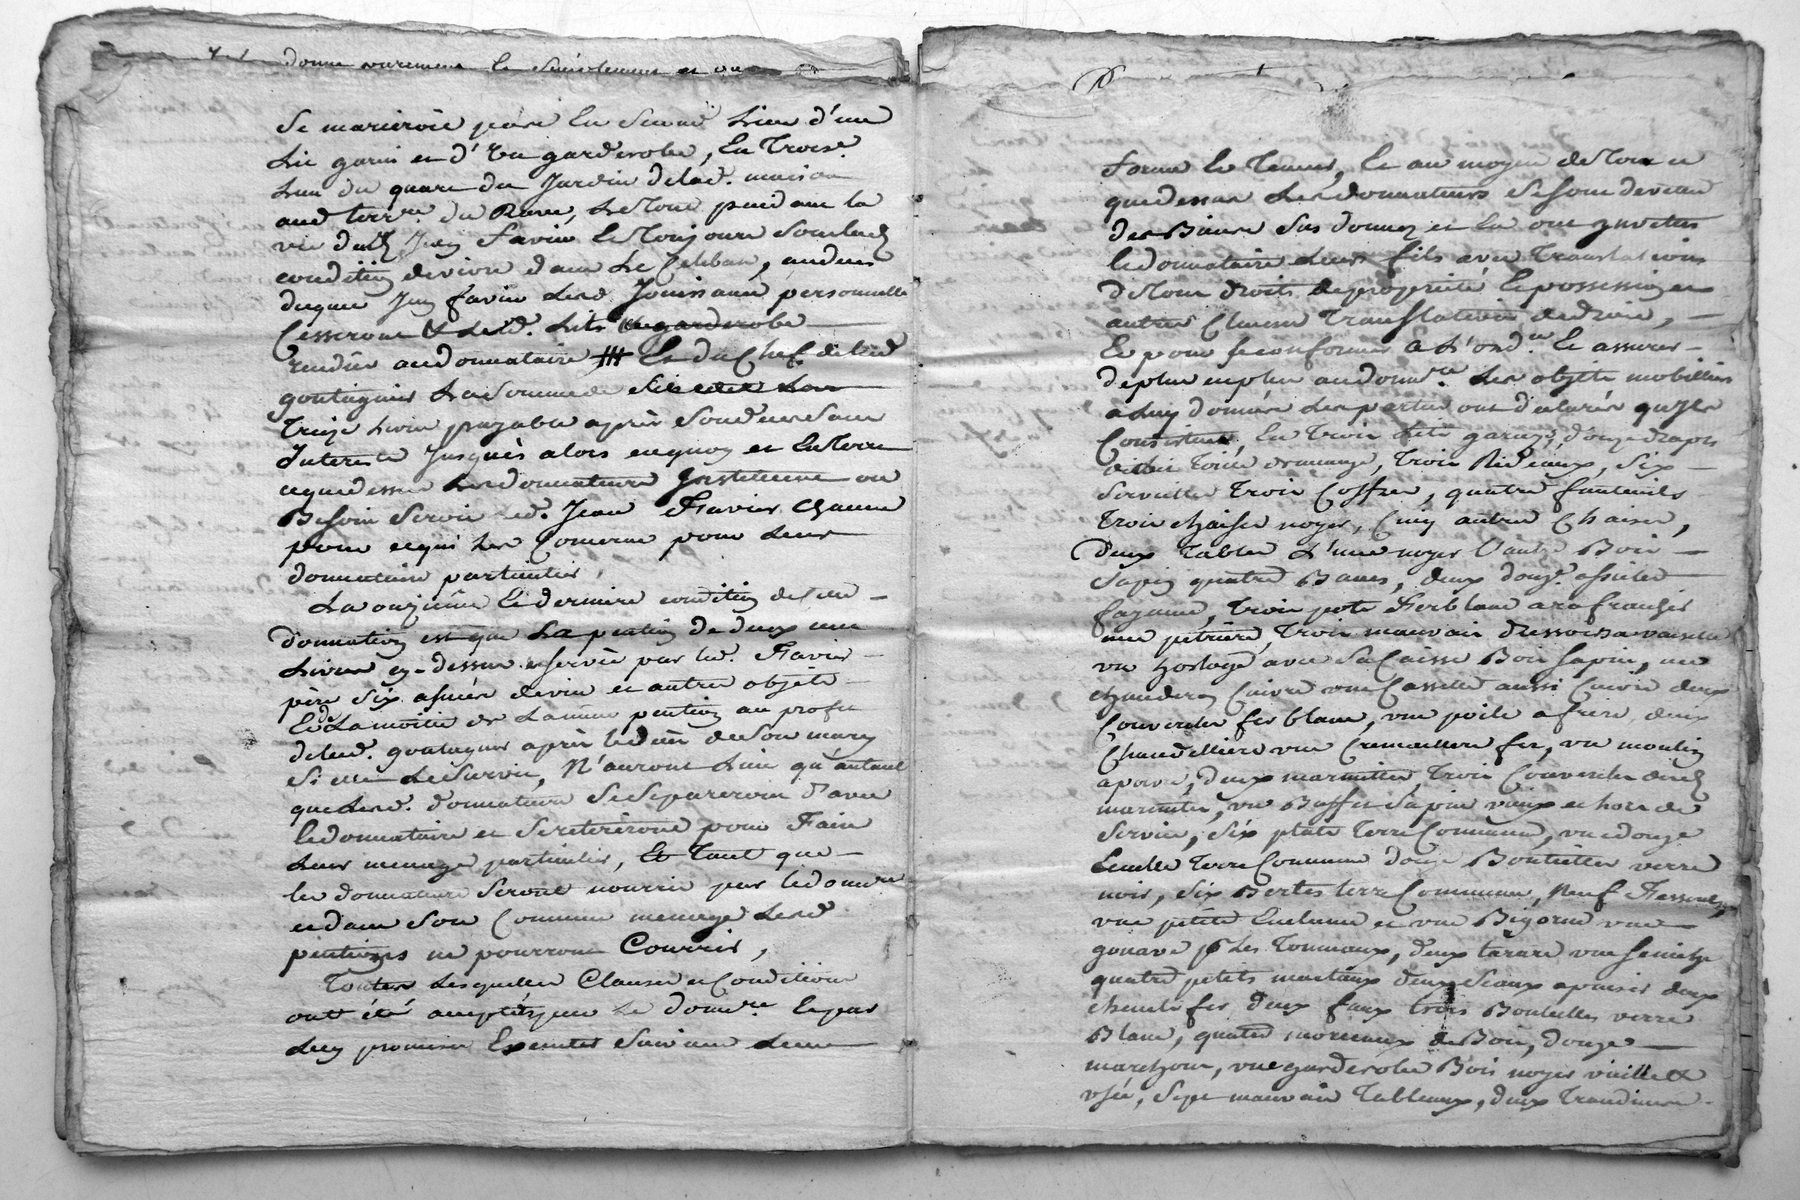 donne purement le
Se marieroit pour la Seconde Lieu d'un
Lit garni et d'une garderobe, En Trois.e
Lieu du quart du Jardin delad. maison
aud terr.re du Rave, Le Tout pendant la
vie dud Jean favier Et Toujours Soubs la
condition devivre dans Le Celibat, audeces
duquel Jean favier Lesd. Jouissance personnelle
Cesseront & Lesd. Lits & garderobe
au donnataire Et du Chef de lad
goutagnier La Somme de
Treize Livres payable après Son deces Sans
Interests Jusques alors enquoy et En Tout
cequedessus Lesdonnateurs Instituent au
Besoin Servir led. Jean Favier Chacun
pour cequi Les Concerne pour Leur
donnataire particulier,
La onzieme Et derniere condition de Cette
donnation est que La pention de deux cent
Livres cy-dessus reservée par led. Favier
père Six asnées devin et autres objets
Et La moitié de La meme pention au profit
delad. goutagnier après ledecès deSon mary
Si elle Le Survit, N'auront Lieu qu'autant
que Lesd. donnateurs Se Separeroient D'avec
ledonnataire et Seretireront pour Faire
Leur menage particulier, Et Tant que
les donnateurs Seront nourris par ledonn.re
et dans Son Commun menage Lesd
pentions ne pourront Courrir,
Toutes Lesquelles Clauses et Conditions
ont été acceptées par Le donn.re Et par
Luy promises Executer Suivant Leur
forme Et Teneur, Et au moyen de Tout ce
quedessus Les donnateurs Se sont devetus
des Biens Sus donnez et En ont investus
ledonnataire Leurs fils avec Translations
de Tous droits de propriété Et possession et
autres Clauses Translatives dedroit,
Et pour Se conformer à L'ord.ce Et assurer
deplus enplus audonn.re Les objets mobilliers
a Luy donnés Les parties ont déclarés qu'ils
Consistent En Trois Lits garnis, douze draps
delit Toille demenage, Trois Rideaux, Six
Serviettes Trois Coffres, quatre fauteuils
Trois chaises noyer, Cinq autres Chaises,
Deux Tables L'une noyer L'autre Bois
Sapin quatre Bancs, deux douz.e assiettes
fayance, Trois pots Ferblanc
une petriere, Trois mauvais dressoirs a vaisselle
un horloge avec Sa Caisse Bois Sapin, une
chauderon Cuivre une Cassette aussi Cuivre deux
Couvercles fer blanc, une poile a frire, deux
Chandelliers une Cremaillere fer, un moulin
a poivre, deux marmittes, Trois Couvercles desd
marmittes, un Buffet Sapin vieux et hors de
Service, Six plats Terre Commune, une douze
Ecuelles Terre Commune douze Bouteilles verre
noir, Six Bertes terre Commune, Neuf
une petite Enclume et une Bigorne une
gouave p.r Les Tonneaux, deux tarare une
quatre petits marteaux deux Seaux a puiser deux
chenets fer deux faux trois Bouteilles verre
Blanc, quatre morceaux de Bois, douze
une garderobe Bois noyer vieille &
usée, Sept mauvais Tableaux, deux